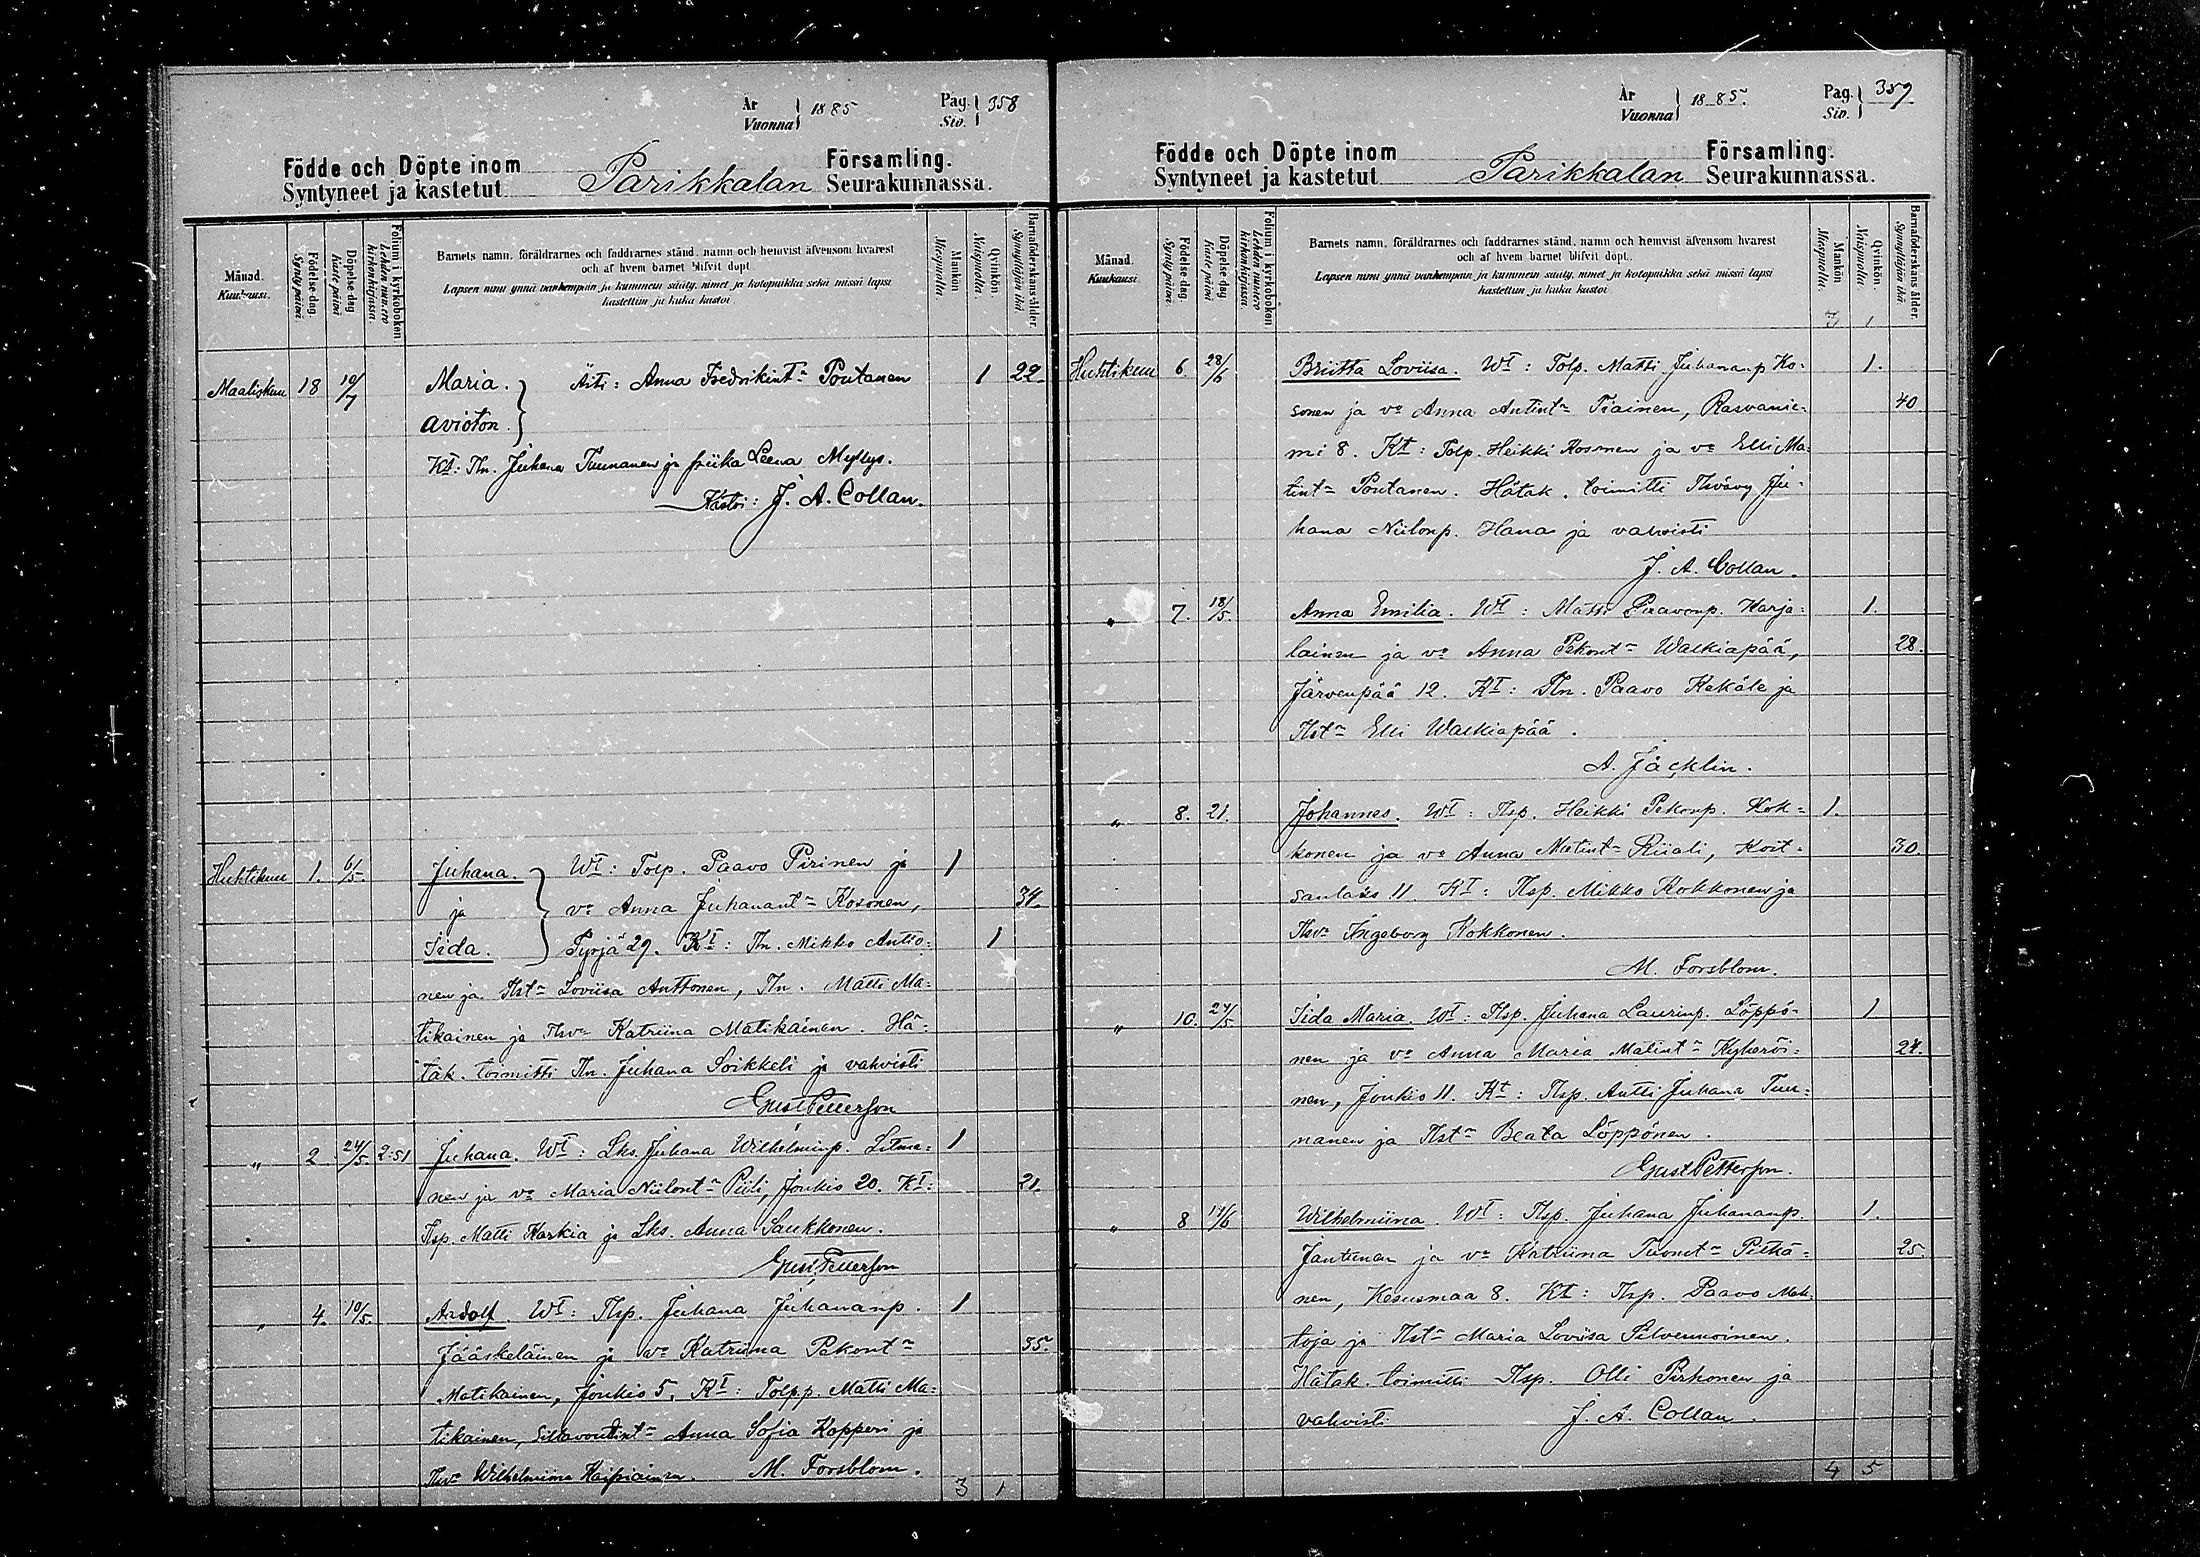 År Vuonna 1885 Pag. Siv. 358
Födde och Döpte inom Församling.
Syntyneet ja kastetut Parikkalan Seurakunnassa.
Månad. Kuukausi.
Födelse-dag. Syntypäivä.
Döpelse-dag. Kastepäivä.
Folium i kyrkoboken Lehden numero kirkonkirjassa.
Barnets namn, föräldrarnes och faddrarnes stånd, namn och hemvist äfvensom hvarest
och af hvem barnet blifvit döpt.
Lapsen nimi ynnä vanhempain ja kummein sääty, nimet ja kotopaikka sekä missä lapsi
kastettiin ja kuka kastoi.
Mankön Miespuolia.
Qvinkön. Naispuolia.
Barnaföderskans ålder. Synnyttäjän ikä.
Maaliskuu 18 10/7 Maria. Äiti: Anna Fredrikint. Poutanen 1 22.
avioton.
Kt: Tln. Juhana Tuunanen ja piika Leena Myllys.
Kastoi: J. A. Collan.
Huhtikuu 1. 6/5. Juhana. Wt: Tolp. Paavo Pirinen ja 1
ja vo Anna Juhanant. Kosonen, 34.
Iida. Tyrjä 29. Kt: Tln. Mikko Antto= 1
nen ja Tlst. Loviisa Anttonen, Tln. Matti Ma=
tikainen ja Tlvo Katriina Matikainen. Hä=
täk. toimitti Tln. Juhana Soikkeli ja vahvisti
Gust Petterson
" 2. 24/5. 2:51 Juhana. Wt: Lks. Juhana Wilhelminp. Litma= 1
nen ja vo Maria Niilont. Piili, Joukio 20. Kt: 21.
Tlsp. Matti Karkia ja Lks. Anna Saukkonen.
Gust Petterson
" 4. 10/5. Aadolf. Wt: Tlsp. Juhana Juhananp. 1
Jääskeläinen ja vo Katriina Pekont. 35.
Matikainen, Joukio 5. Kt: Tolpp. Matti Ma=
tikainen, Siltavoudint. Anna Sofia Kopperi ja
Tlvo Wilhelmiina Kaipiainen. M. Forsblom.
3 1
År Vuonna 1885. Pag. Siv. 359
Födde och Döpte inom Församling.
Syntyneet ja kastetut Parikkalan Seurakunnassa.
Månad. Kuukausi.
Födelse-dag. Syntypäivä.
Döpelse-dag Kastepäivä.
Folium i kyrkoboken Lehden numero kirkonkirjassa.
Barnets namn, föräldrarnes och faddrarnes stånd, namn och hemvist äfvensom hvarest
och af hvem barnet blifvit döpt.
Lapsen nimi ynnä vanhempain ja kummein sääty, nimet ja kotopaikka sekä missä lapsi
kastettiin ja kuka kastoi
Mankön Miespuolia.
Qvinkön. Naispuolia.
Barnaföderskans ålder. Synnyttäjän ikä.
3 1
Huhtikuu 6. 28/6 Briitta Loviisa. Wt: Tolp. Matti Juhananp Ko= 1.
sonen ja vo Anna Antint. Tiainen, Rasvanie= 40
mi 8. Kt: Tolp. Heikki Kosonen ja vo Elli Ma=
tint. Poutanen. Hätäk. toimitti Tlvävy Ju=
hana Niilonp. Hana ja vahvisti
J. A. Collan.
" 7. 18/5. Anna Emilia. Wt: Matti Paavonp. Karja= 1.
lainen ja vo Anna Pekont. Walkiapää, 28.
Järvenpää 12. Kt: Tln. Paavo Kekäle ja
Tlst. Elli Walkiapää.
A. Jäcklin.
" 8. 21. Johannes. Wt: Tlsp. Heikki Pekonp. Kok= 1.
konen ja vo Anna Matint. Riiali, Koit= 30.
sanlaks 11. Kt: Tlsp. Mikko Kokkonen ja
Tlvo Ingeborg Kokkonen.
M. Forsblom.
" 10. 24/5. Iida Maria. Wt: Tlsp. Juhana Laurinp. Löppö= 1
nen ja vo Anna Maria Matint. Kyheröi= 24.
nen, Joukio 11. Kt: Tlsp. Antti Juhana Tuu=
nanen ja Tlst. Beata Löppönen.
Gust Petterson.
" 8 14/6 Wilhelmiina. Wt: Tlsp. Juhana Juhananp. 1.
Jantunen ja vo Katriina Tuomt. Pitkä= 25.
nen, Kesusmaa 8. Kt: Tlsp. Paavo Mak=
toja ja Tlst. Maria Loviisa Silvennoinen.
Hätäk. toimitti Tlsp. Olli Pirhonen ja
vahvisti J. A. Collan.
4 5